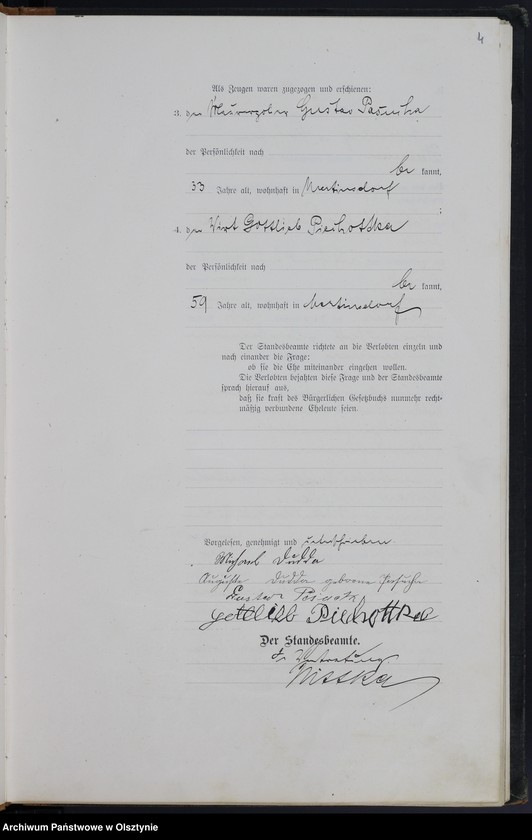 4
Als Zeugen waren zugezogen und erschienen:
3. der Gustav
der Persönlichkeit nach
be kannt,
33 Jahre alt, wohnhaft in Martinsdorf
;
4. der Wirt Gottlieb Piechottka
der Persönlichkeit nach
be kannt,
59 Jahre alt, wohnhaft in Martinsdorf
Der Standesbeamte richtete an die Verlobten einzeln und
nach einander die Frage:
ob sie die Ehe miteinander eingehen wollen.
Die Verlobten bejahten diese Frage und der Standesbeamte
sprach hierauf aus,
daß sie kraft des Bürgerlichen Gesetzbuchs nunmehr recht-
mäßig verbundene Eheleute seien.
Vorgelesen, genehmigt und unterschrieben
Michael Dudda
Auguste Dudda geborene
Gustav
Gottlieb Piechottka
Der Standesbeamte.
In Vertretung
Nisska
Archiwum Państwowe w Olsztynie